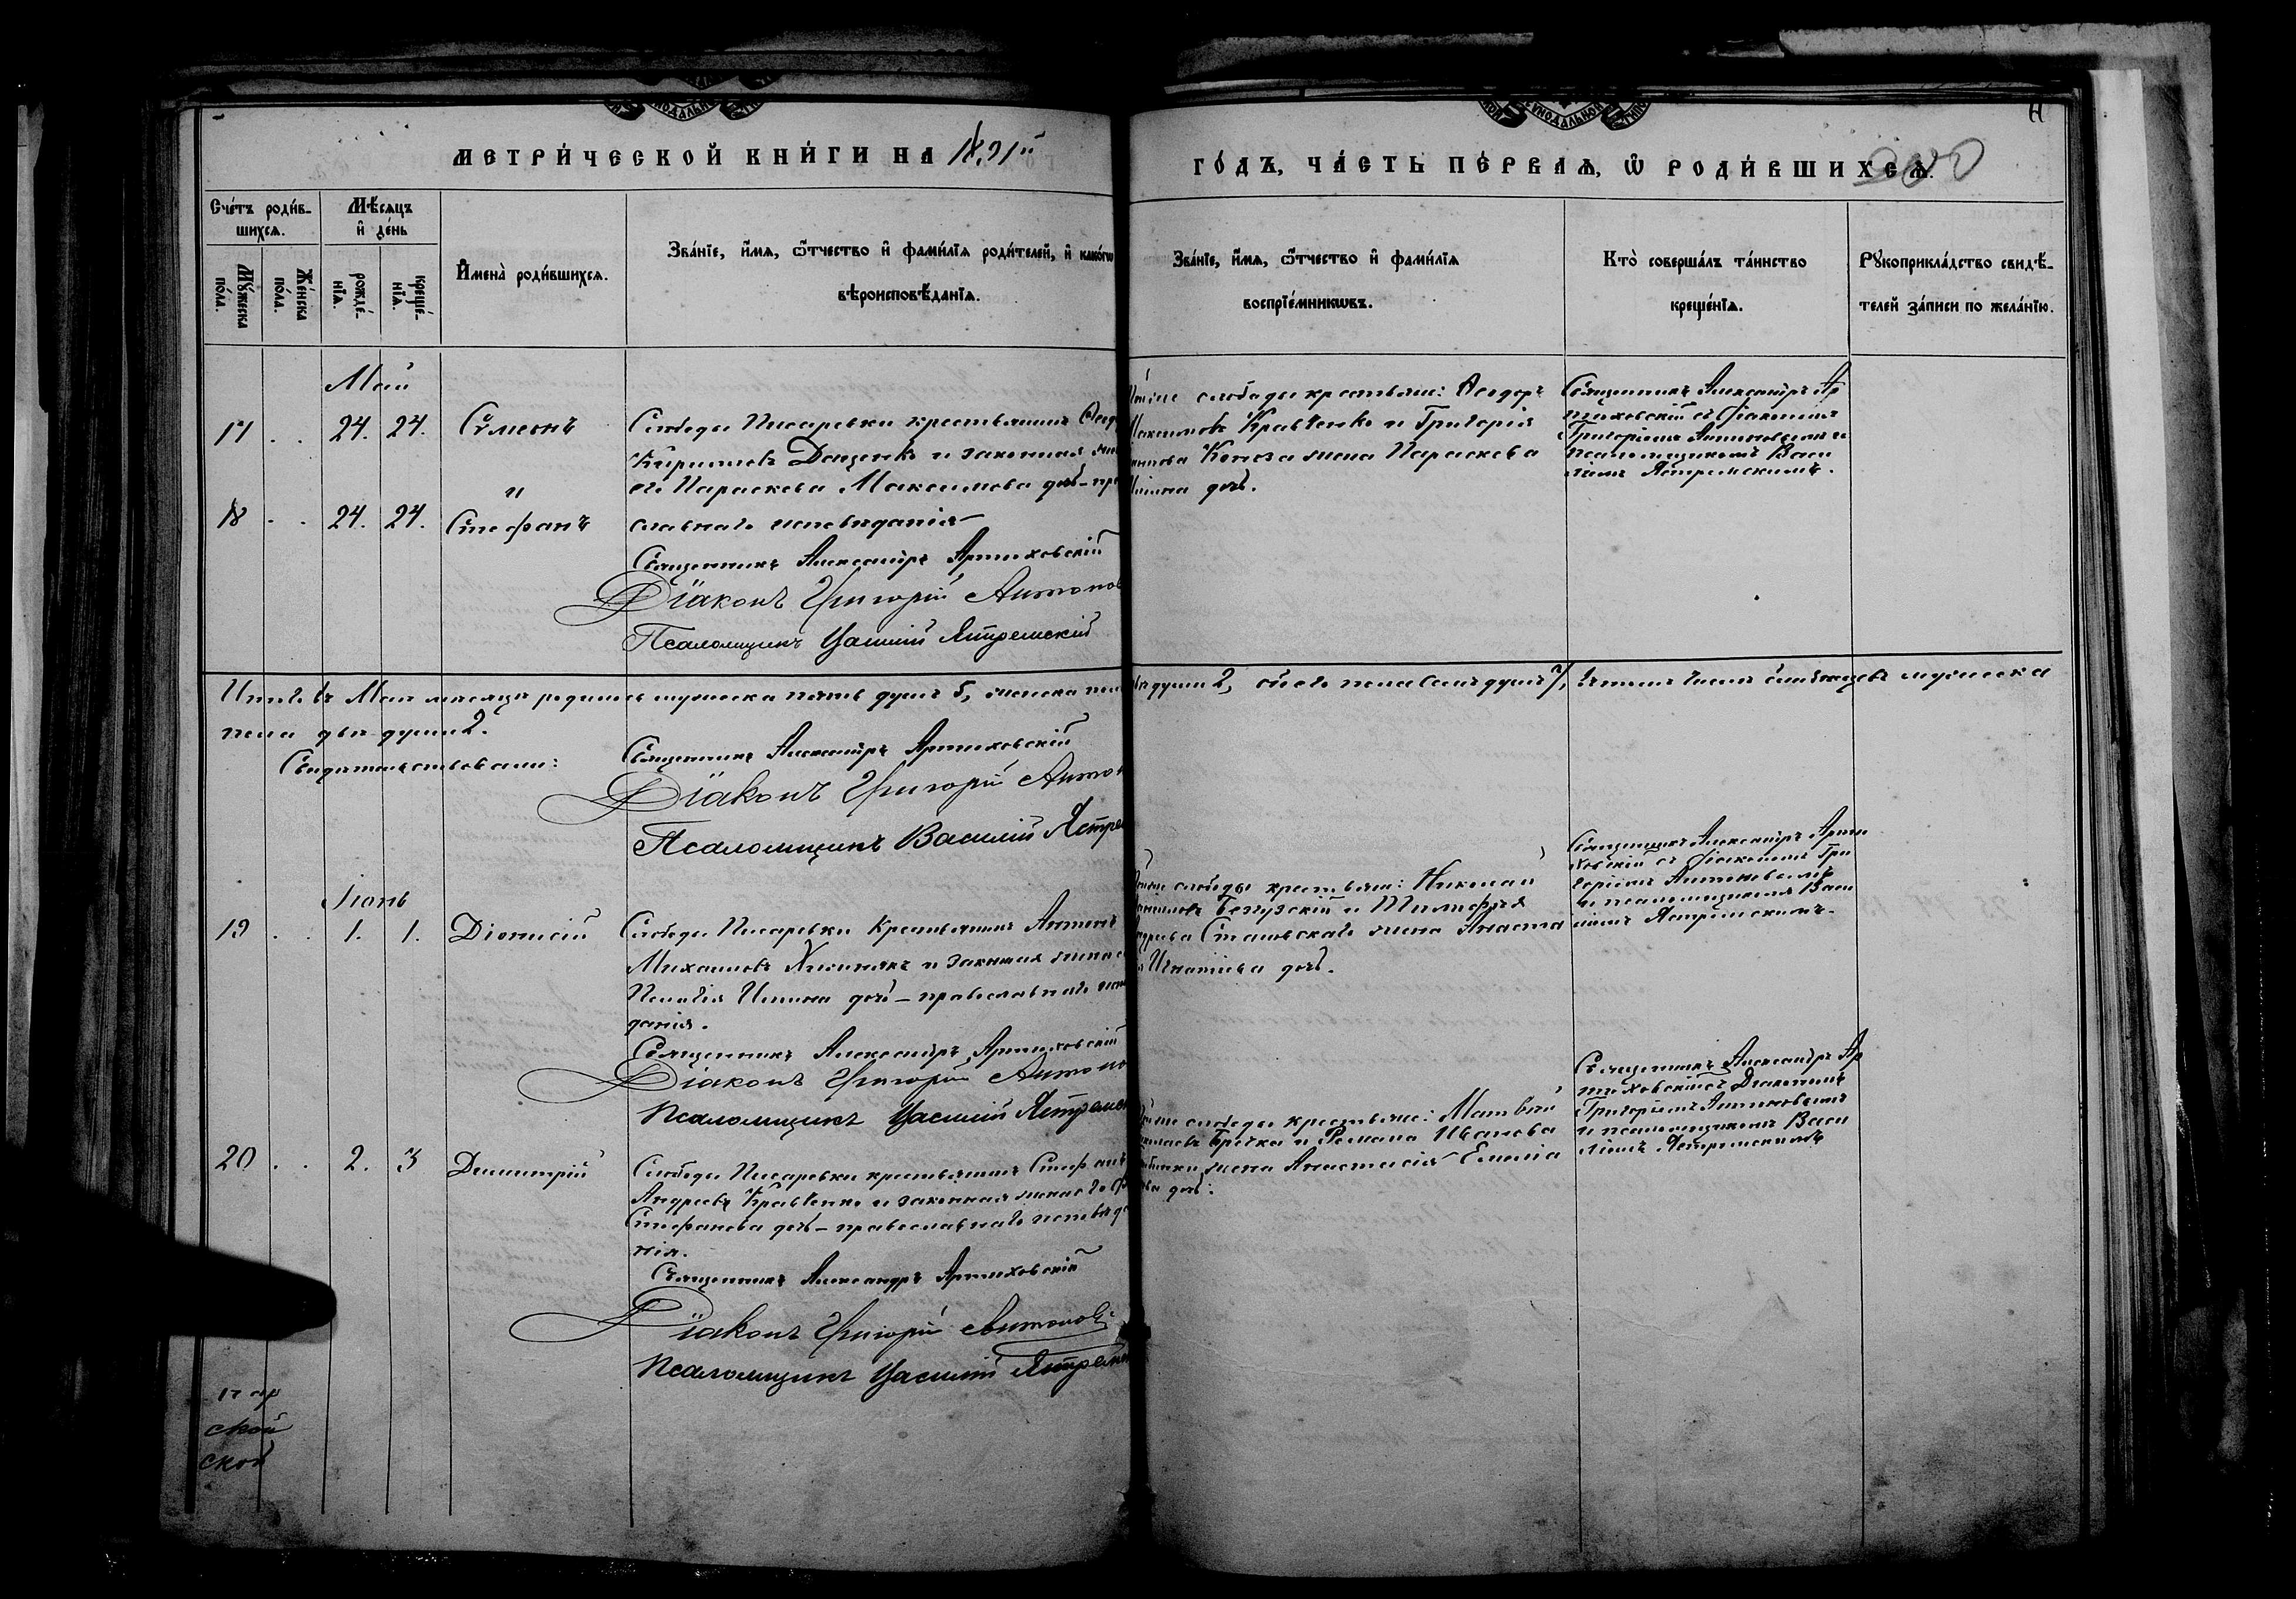 МЕТРИ́ЧЕСКОЙ КНИ́ГИ НА 1891й
ГО́ДЪ, ЧА́СТЬ ПЕ́РВАѦ, Ѡ РОДИ́ВШИХСѦ.
Сче́тъ роди́в-
шихсѧ.
Мѣ́сѧцъ
и де́нь
Мꙋ́жеска
по́ла.
Же́нска
по́ла.
рожде́-
нїѧ.
креще́-
нїѧ.
Имена̀ роди́вшихсѧ.
Зва́нїе, и́мѧ, ѻ́тчество и фами́лїѧ роди́телей, и како́гѡ
вѣроисповѣ́данїѧ.
Зва́нїе, и́мѧ, ѻ́тчество и фами́лїѧ
воспрїе́мникѡвъ.
Кто̀ соверша́лъ та́инство
креще́нїѧ.
Рꙋкоприкла́дство свидѣ́-
телей за́писи по жела́нїю.
Май
17 . . 24. 24. Сѵмеонъ
18 . . 24. 24. Стефанъ
Слободы Писаревки крестьянинъ
Кирилловъ Доценко и законная
его Параскева Максимова дочь – пра
славнаго исповѣданія
Священникъ Александръ Артиховскій
Діаконъ Григорій Антонов
Псаломщикъ Василій Ястремскій
слободы крестьяне: Ѳеодоръ
Максимовъ Кравченко и Григорія
жена Параскева
дочь.
Священникъ Александръ Ар
тиховскій съ Діакономъ
Григоріемъ Антоновымъ и
псаломщикомъ Васи
ліемъ Ястремскимъ.
Итого въ Маѣ мѣсяцѣ родилось мужеска пять душъ 5, женска пола
двѣ души 2, обоего пола семь душъ 7, въ томъ числѣ близнецовъ мужеска
пола двѣ души 2.
Свидѣтельствовали:
Священникъ Александръ Артиховскій
Діаконъ Григорій Антон
Псаломщикъ Василій Ястре
Іюнь
19 . . 1. 1. Діонисій
Слободы Писаревки Крестьянинъ Антонъ
Михаиловъ и законная жена
Пелагія дочь – православнаго испо
данія.
Священникъ Александръ Артиховскій
Діаконъ Григорій Антоно
Псаломщикъ Василій Ястремс
слободы крестьяне: Николай
и Тимоѳея
жена Анаста
Игнатіева дочь.
Священникъ Александръ Арти
ховскій съ Діакономъ Гри
горіемъ Антоновымъ
и псаломщикомъ Васи
ліемъ Ястремскимъ.
20 . . 2. 3 Димитрій
Слободы Писаревки крестьянинъ Стефанъ
Андреевъ Кравченко и законная жена его
Стефанова дочь – православнаго исповѣда
нія.
Священникъ Александръ Артиховскій
Діаконъ Григорій Антоновъ
Псаломщикъ Василій Ястремс
слободы крестьяне: Матвѣй
и Романа Иванова
жена Анастасія Емелia
ва дочь.
Священникъ Александръ Ар
тиховскій съ Діакономъ
Григоріемъ Антоновымъ
и псаломщикомъ Васи
ліемъ Ястремскимъ
ской
ской